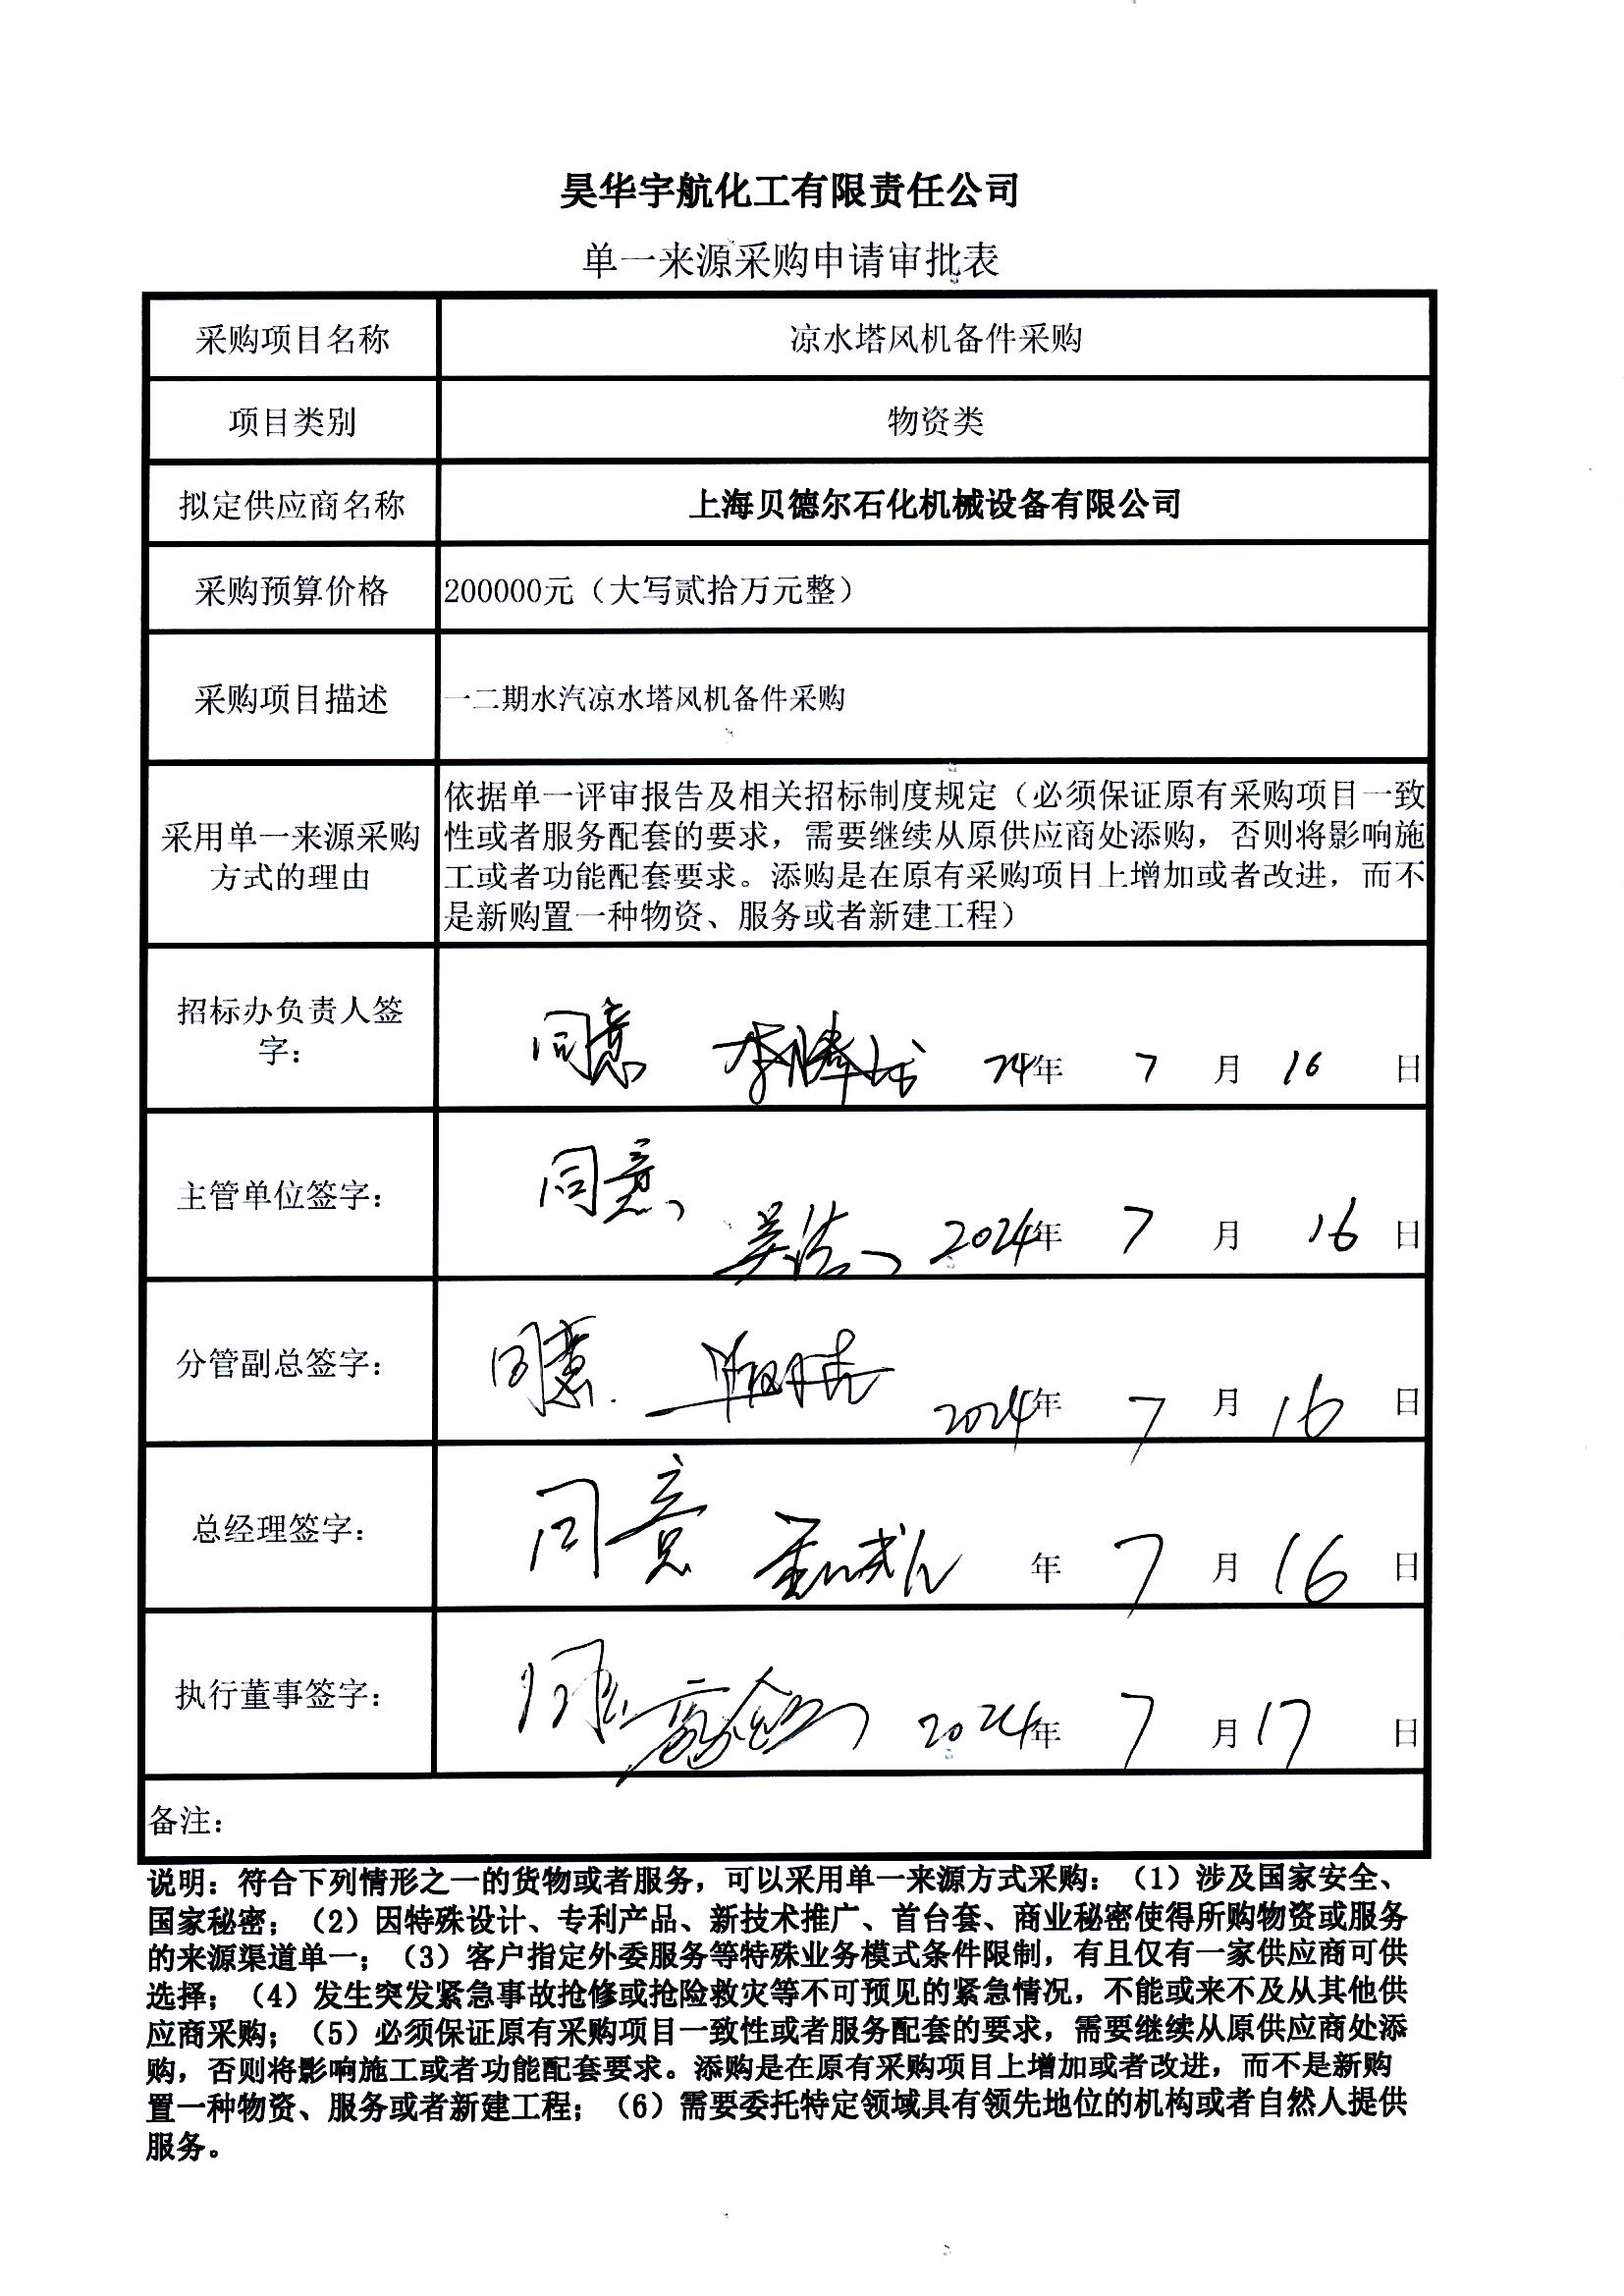 昊华宇航化工有限责任公司
单一来源采购申请审批表
采购项目名称
凉水塔风机备件采购
项目类别
物资类
拟定供应商名称
上海贝德尔石化机械设备有限公司
采购预算价格
200000元（大写贰拾万元整）
采购项目描述
一二期水汽凉水塔风机备件采购
采用单一来源采购
方式的理由
依据单一评审报告及相关招标制度规定（必须保证原有采购项目一致
性或者服务配套的要求，需要继续从原供应商处添购，否则将影响施
工或者功能配套要求。添购是在原有采购项目上增加或者改进，而不
是新购置一种物资、服务或者新建工程）
招标办负责人签
字：
同意 24年 7 月 16 日
主管单位签字：
同意 2024年 7 月 16 日
分管副总签字：
同意. 2024年 7 月 16 日
总经理签字：
同意 年 7 月 16 日
执行董事签字：
同意 2024年 7 月 17 日
备注：
说明：符合下列情形之一的货物或者服务，可以采用单一来源方式采购：（1）涉及国家安全、
国家秘密；（2）因特殊设计、专利产品、新技术推广、首台套、商业秘密使得所购物资或服务
的来源渠道单一；（3）客户指定外委服务等特殊业务模式条件限制，有且仅有一家供应商可供
选择；（4）发生突发紧急事故抢修或抢险救灾等不可预见的紧急情况，不能或来不及从其他供
应商采购；（5）必须保证原有采购项目一致性或者服务配套的要求，需要继续从原供应商处添
购，否则将影响施工或者功能配套要求。添购是在原有采购项目上增加或者改进，而不是新购
置一种物资、服务或者新建工程；（6）需要委托特定领域具有领先地位的机构或者自然人提供
服务。